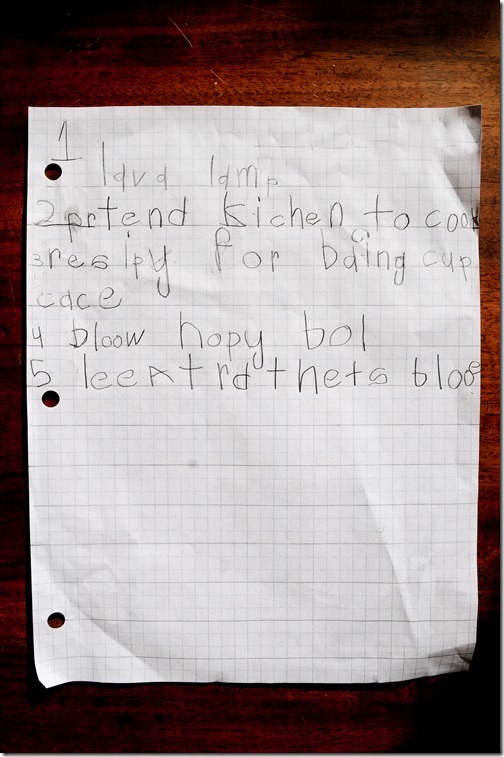 1 lava lamp
2 prtend kichen to cook
3 resipy for baing cup
cace
4 bloow hopy bol
5 leextrd thets bloo